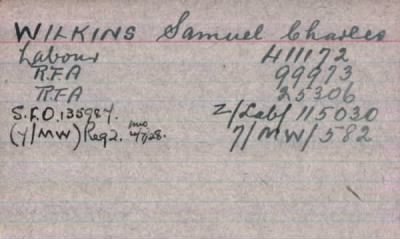 WILKINS Samuel Charles
Labour 411172
R.F.A 99973
RFA 25306
S.F.O. 135984. Z/Lab/ 115030
(Y/MW) Reg2. 7/MW/582